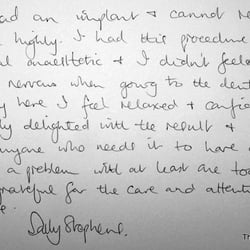 had an implant & cannot re
highly. I had this procedure
al anaesthetic & I didn't feel
nervous when going to the dent
y here I feel relaxed & confi
ly delighted with the result &
anyone who needs it to have
a problem with at least one too
grateful for the care and attenti
e.
Sally Stephens.
T